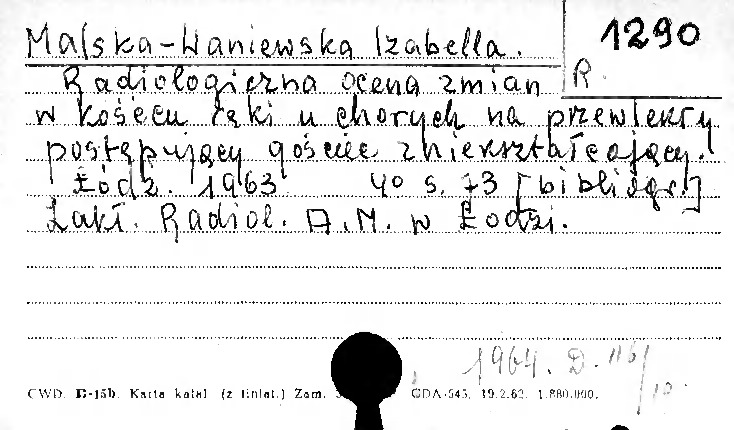 1290
Malska-Waniewska Izabella.
R.
Radiologiczna ocena zmian
w kośćcu ręki u chorych na przewlekły
postępujący gościec zniekształcający.
Łódź. 1963 40 s. 73 [bibliogr.]
Zakł. Radiol. A.M. w Łodzi.
1964. D. 116/10.
CWD. E-15b. Karta katal (z liniat.) Zam. GDA-545. 19.2.62. 1.880.000.